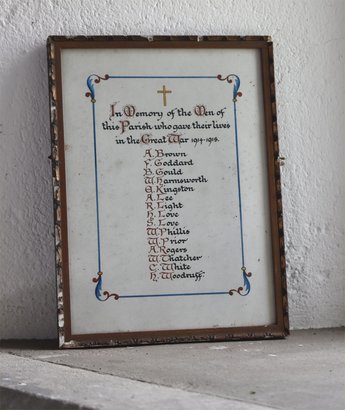 In Memory of the Men of
this Parish who gave their lives
in the Great War 1914-1918.
A. Brown
F. Goddard
B. Gould
W. Harmsworth
A. Lee
R. Light
H. Love
S. Love
W. Phillis
W. Prior
A. Rogers
W. Thatcher
C. White
H. Woodruff.